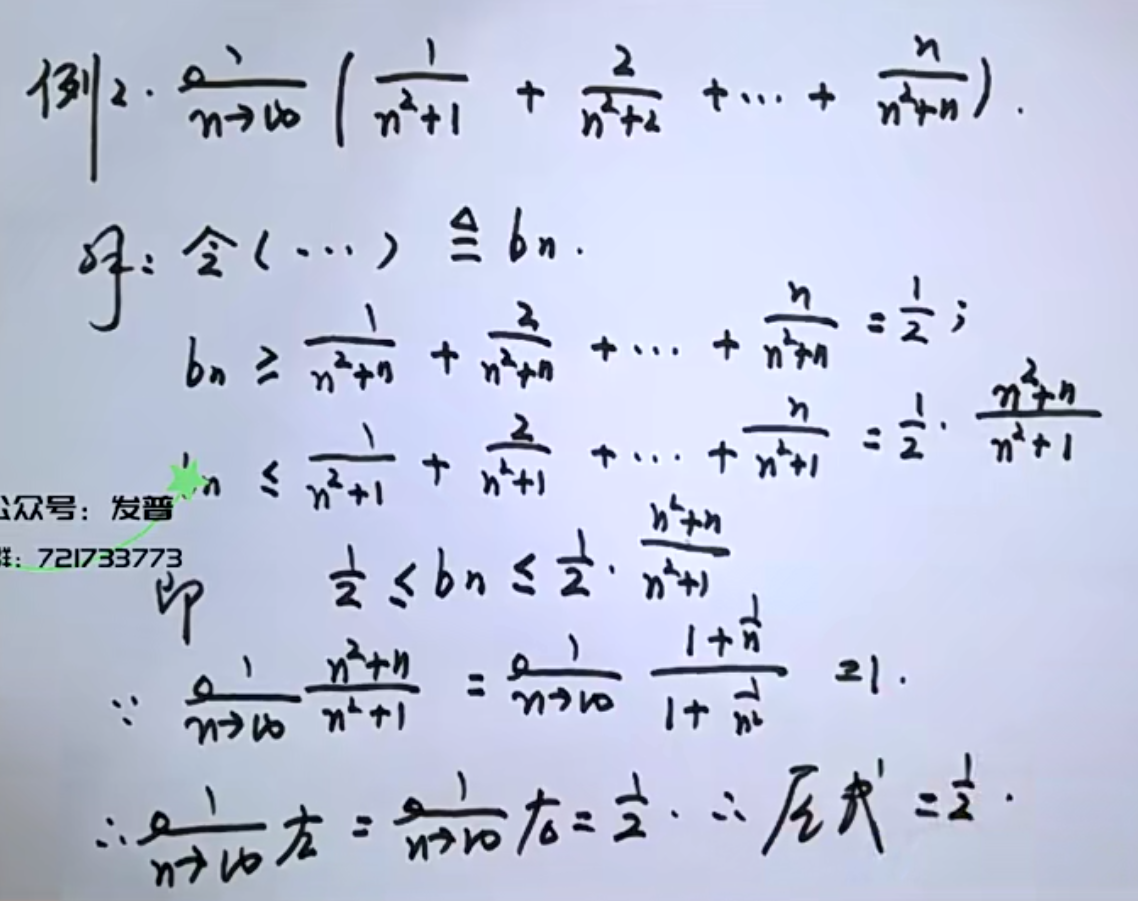 例2. lim n→∞ ( 1/(n²+1) + 2/(n²+2) + ... + n/(n²+n) ).
解: 令(...) ≜ bn.
bn ≥ 1/(n²+n) + 2/(n²+n) + ... + n/(n²+n) = 1/2 ;
bn ≤ 1/(n²+1) + 2/(n²+1) + ... + n/(n²+1) = 1/2 · (n²+n)/(n²+1)
公众号: 发普
群: 721733773
即 1/2 ≤ bn ≤ 1/2 · (n²+n)/(n²+1)
∵ lim n→∞ (n²+n)/(n²+1) = lim n→∞ (1+1/n)/(1+1/n²) = 1.
∴ lim n→∞ 左 = lim n→∞ 右 = 1/2 . ∴ 原式 = 1/2 .